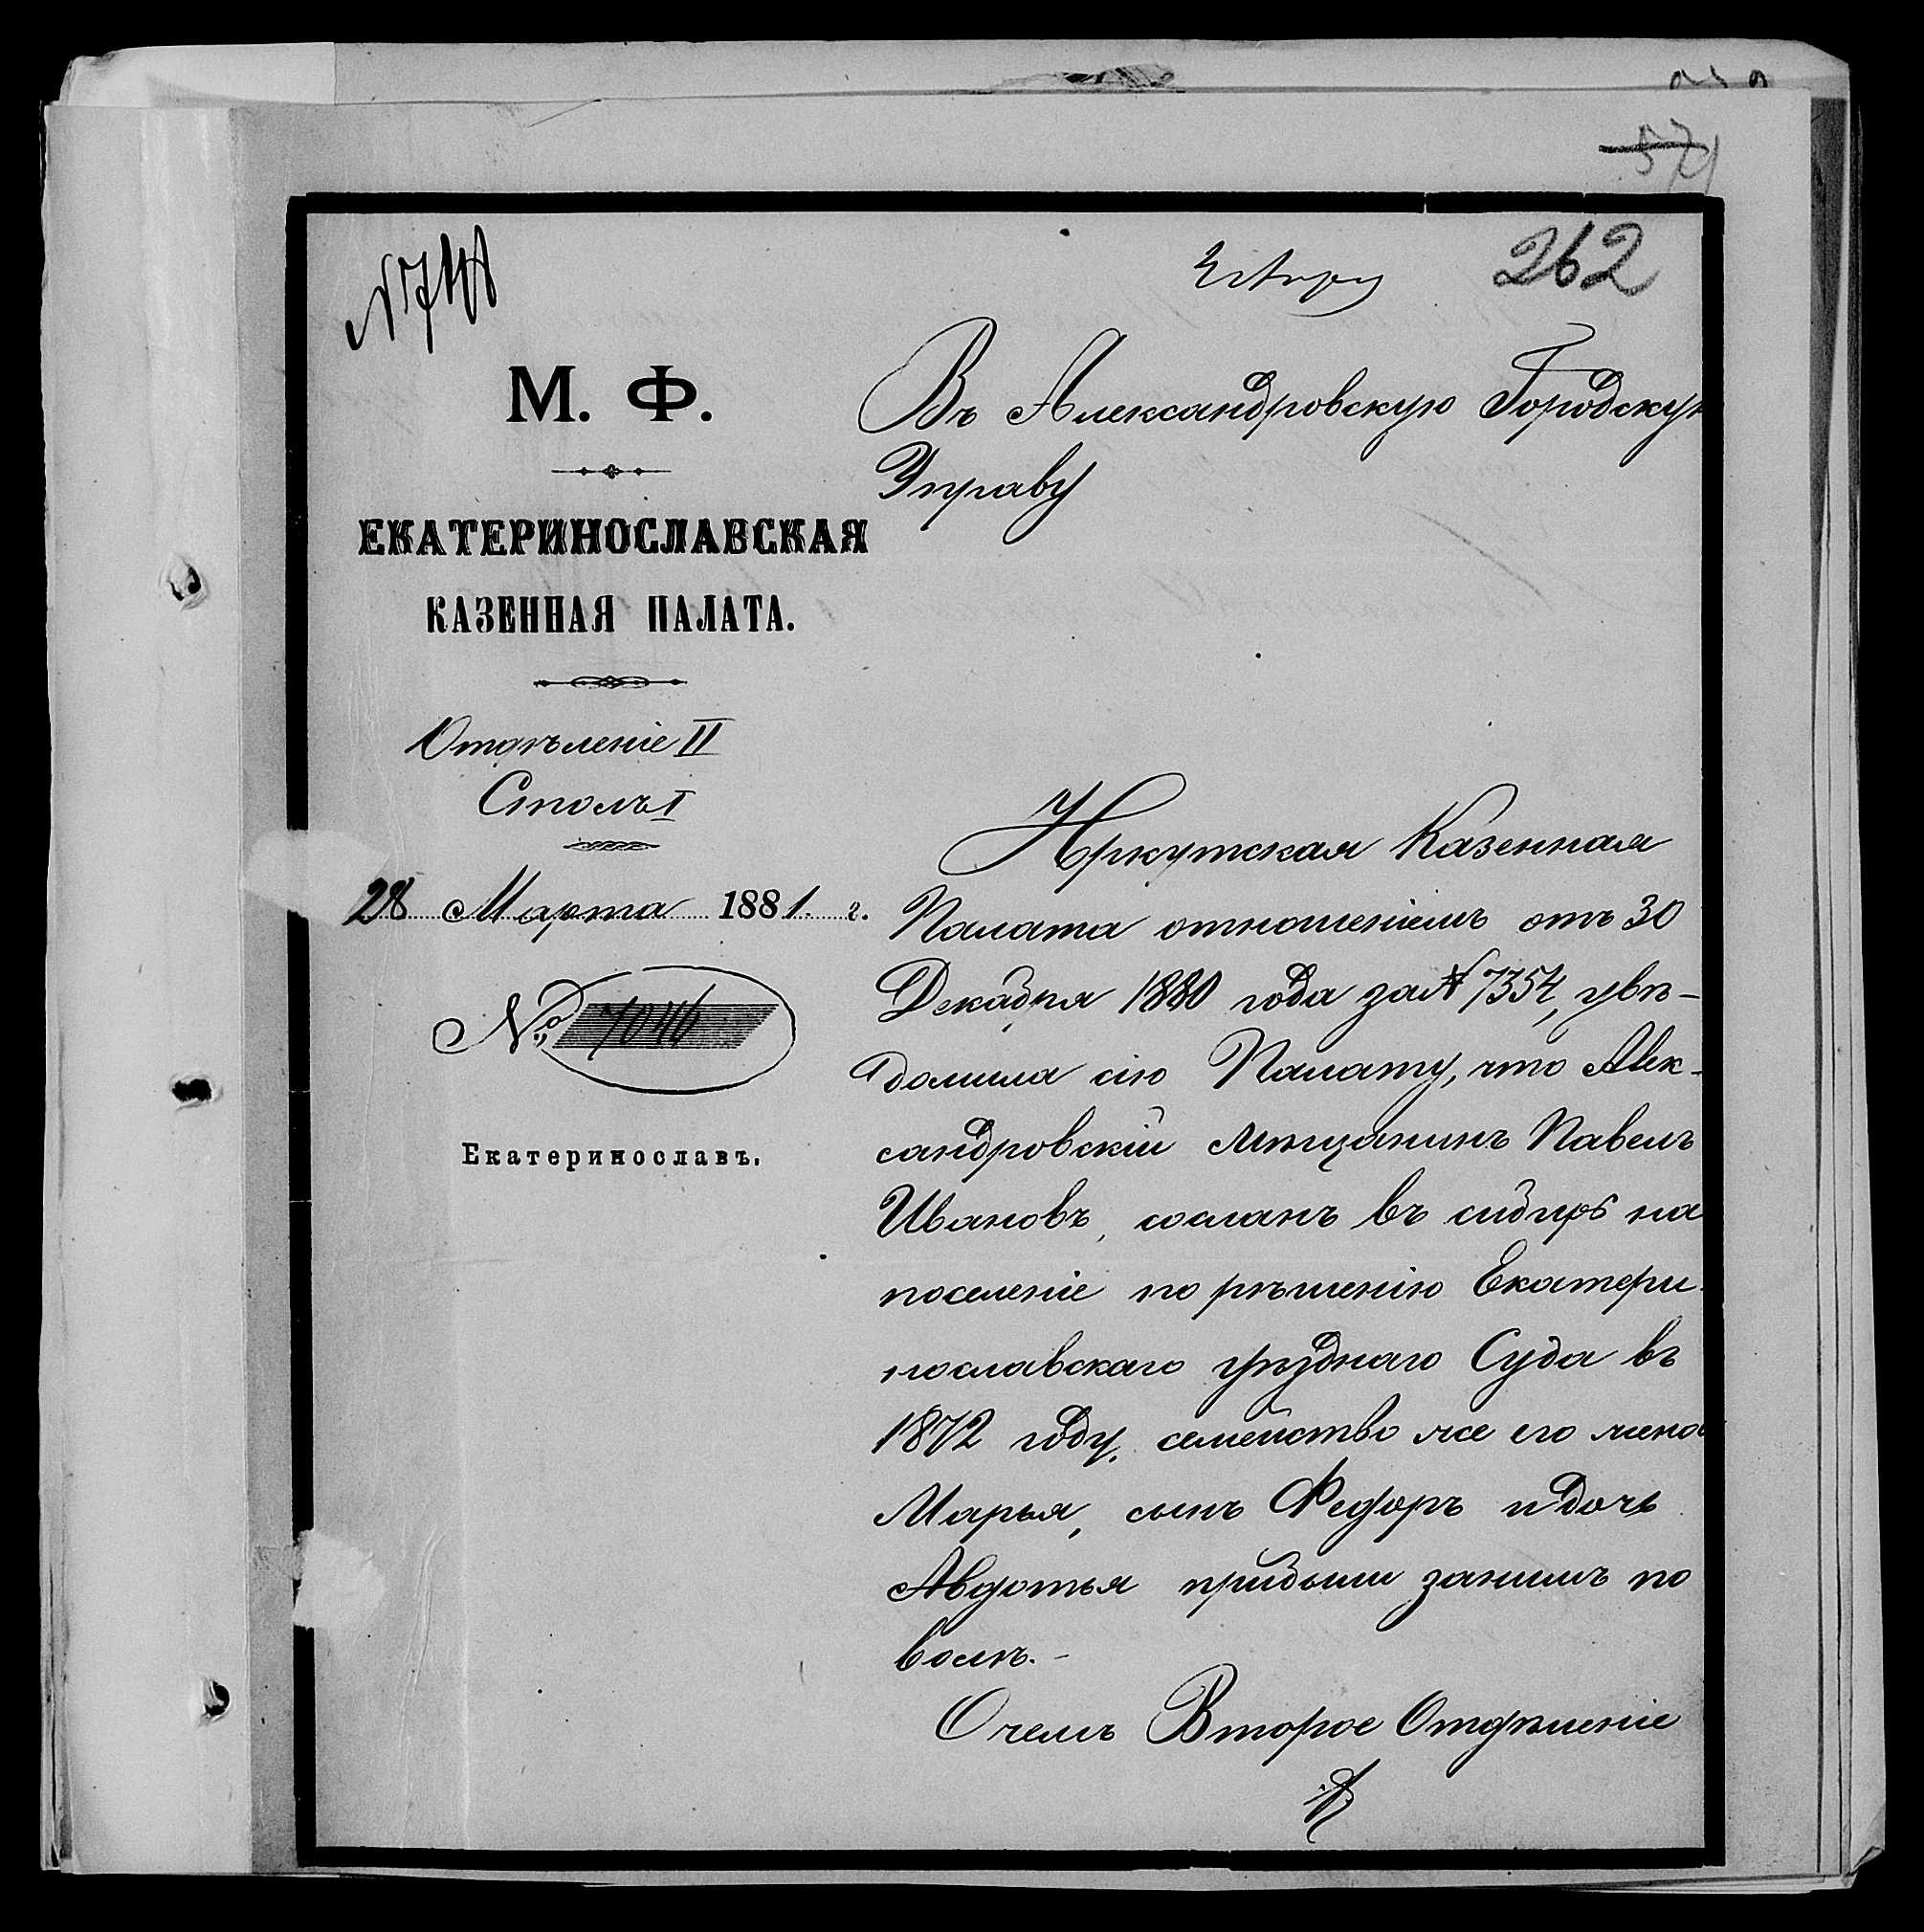 262
М. Ф.
ЕКАТЕРИНОСЛАВСКАЯ
КАЗЕННАЯ ПАЛАТА.
Отдѣленіе II
Столъ I
28 Марта 1881. г.
№ 7046
Екатеринославъ.
Въ Александровскую Городскую
Управу
Иркутская Казенная
Палата отношеніемъ отъ 30
Декабря 1880 года за № 7354, увѣ-
домила сію Палату, что Алек-
сандровскій мѣщанинъ Павелъ
Ивановъ, сосланъ въ сибирь на
поселеніе по рѣшенію Екатери-
нославскаго уѣзднаго Суда въ
1872 году, семейство же его жена
Марья, сынъ Федоръ и дочь
Авдотья прибыли занимъ по
волѣ.-
Очемъ Второе Отдѣленіе